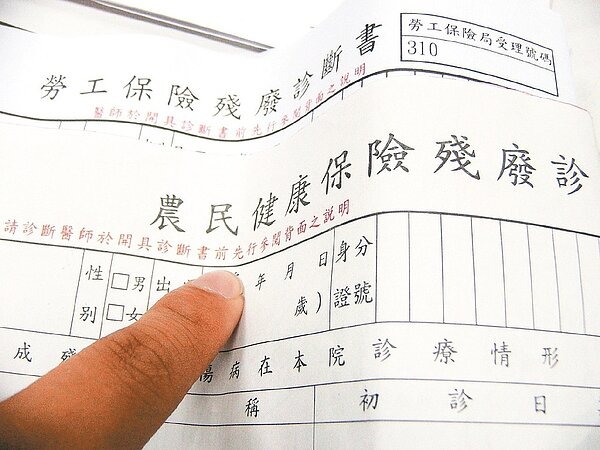 勞工保險殘廢診斷書
勞工保險局受理號碼
310
醫師於開具診斷書前先行參閱背面之說明
農民健康保險殘廢診
請診斷醫師於開具診斷書前先行參閱背面之說明
性別
□男
□女
出
年 月 日
歲)
身分
證號
成殘
傷病在本院診療情形
稱
初診日